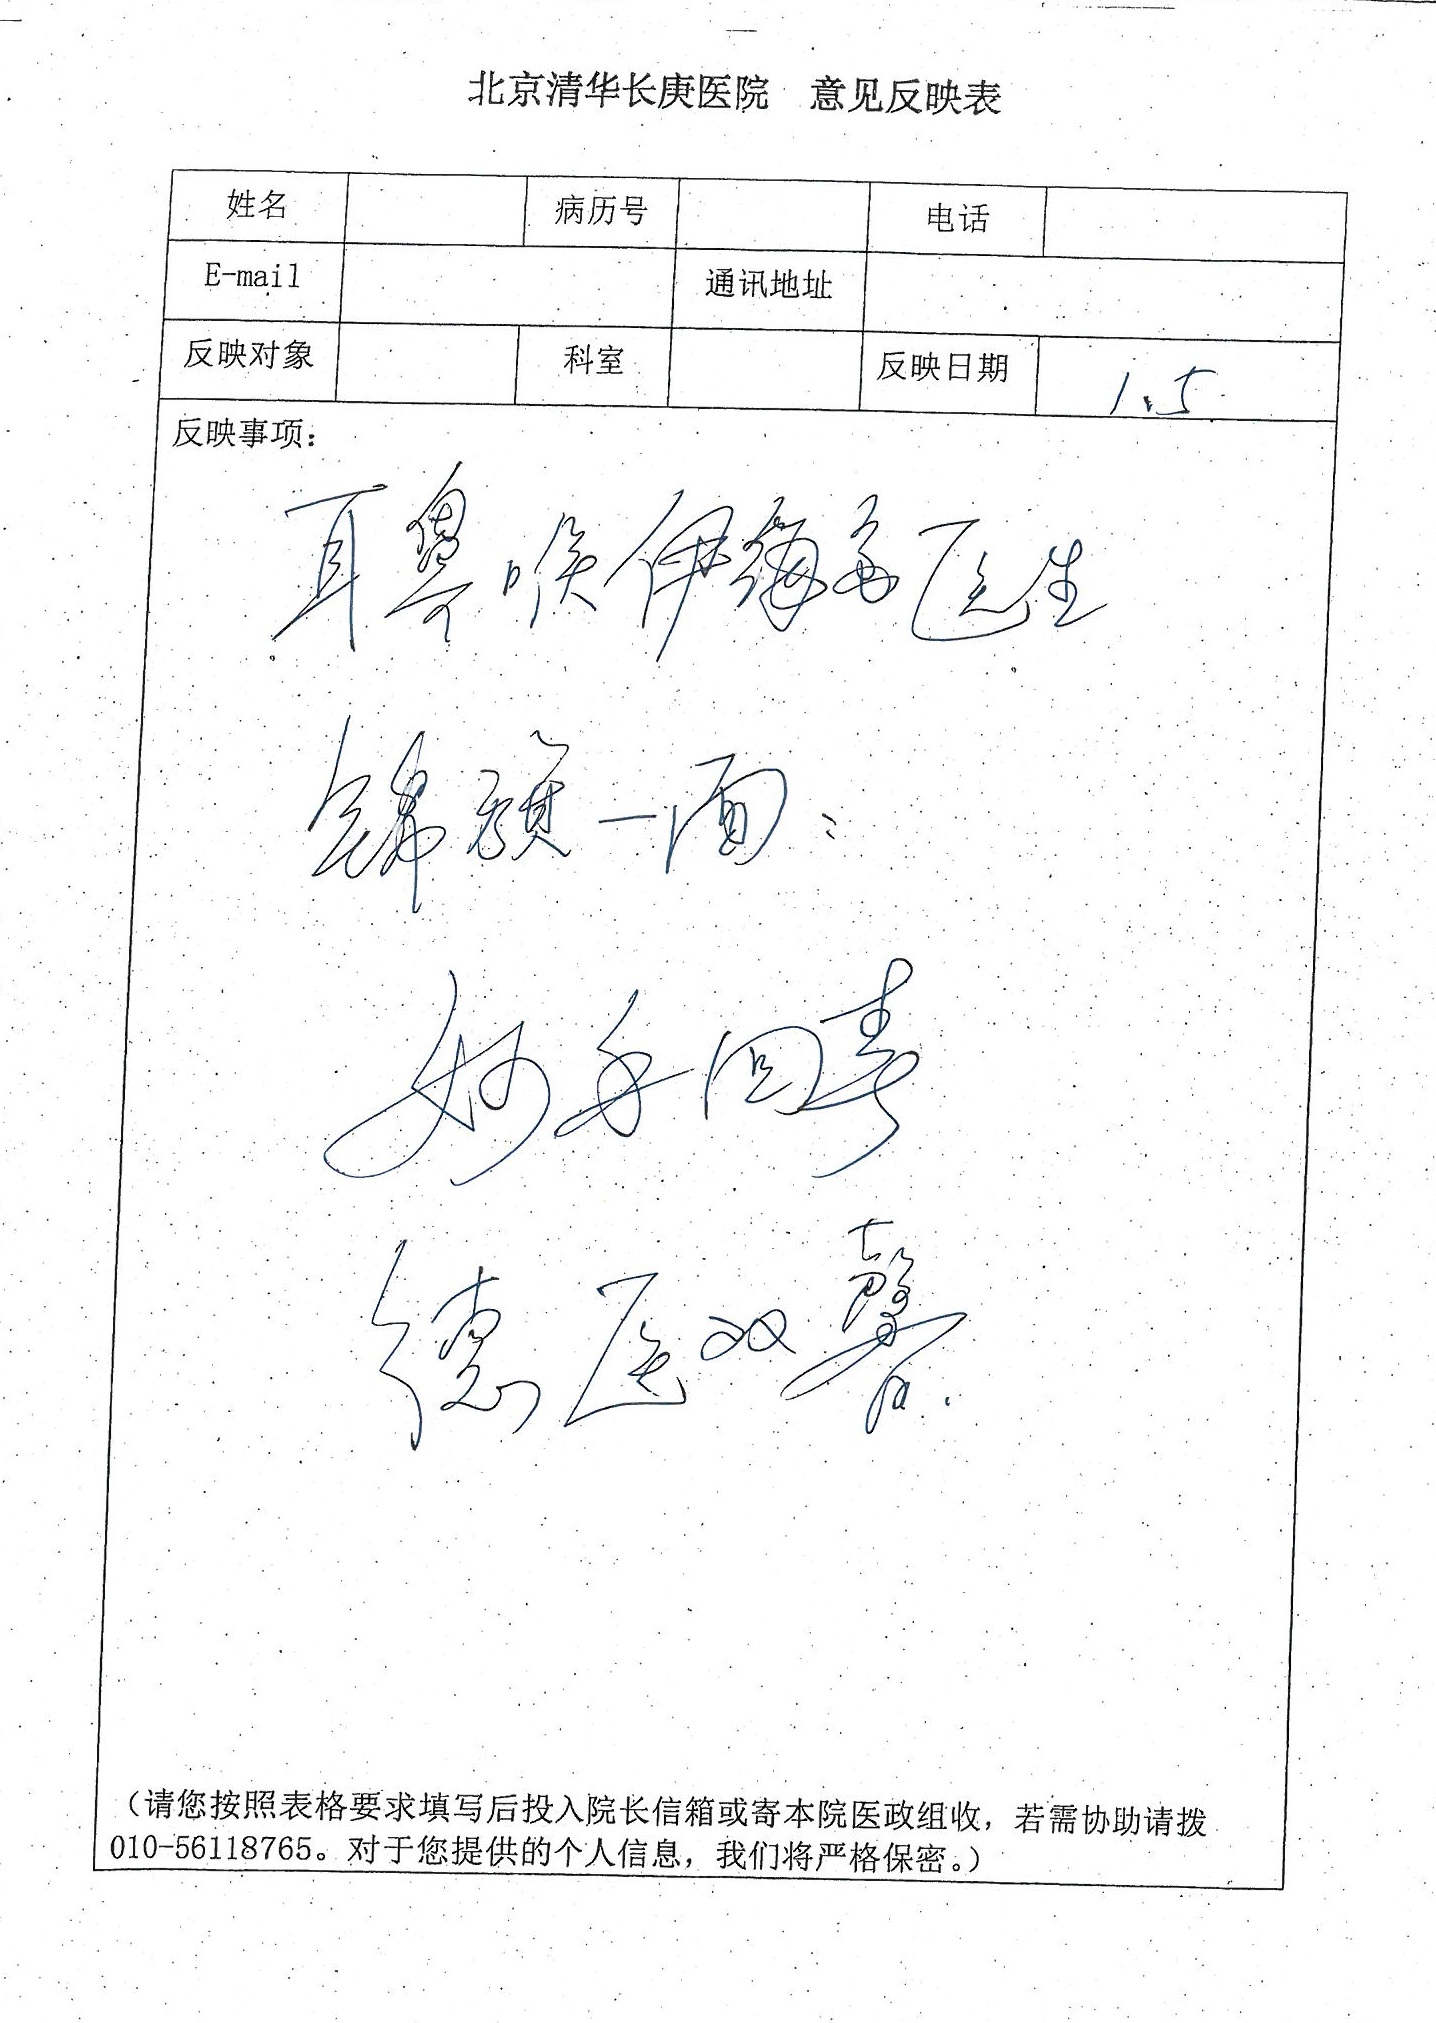 北京清华长庚医院 意见反映表
姓名 病历号 电话
E-mail 通讯地址
反映对象 科室 反映日期 1.5
反映事项：
耳鼻喉伊海金医生
锦旗一面：
妙手回春
德医双馨.
（请您按照表格要求填写后投入院长信箱或寄本院医政组收，若需协助请拨
010-56118765。对于您提供的个人信息，我们将严格保密。）